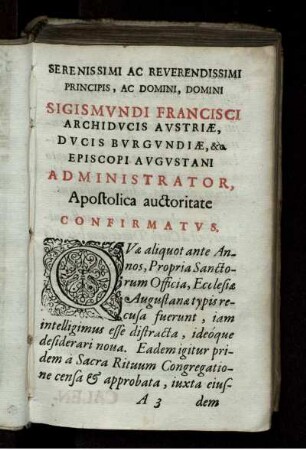 SERENISSIMI AC REVERENDISSIMI
PRINCIPIS, AC DOMINI, DOMINI
SIGISMVNDI FRANCISCI
ARCHIDVCIS AVSTRIÆ,
DVCIS BVRGVNDIÆ, &c.
EPISCOPI AVGVSTANI
ADMINISTRATOR,
Apostolica auctoritate
CONFIRMATVS.
QVæ aliquot ante An-
nos, Propria Sancto-
rum Officia, Ecclesiæ
Augustanæ typis re-
cusa fuerunt, iam
intelligimus esse distracta, ideóque
desiderari noua. Eadem igitur pri-
dem à Sacra Rituum Congregatio-
ne censa & approbata, iuxta eius-
A 3 dem
CALEN-